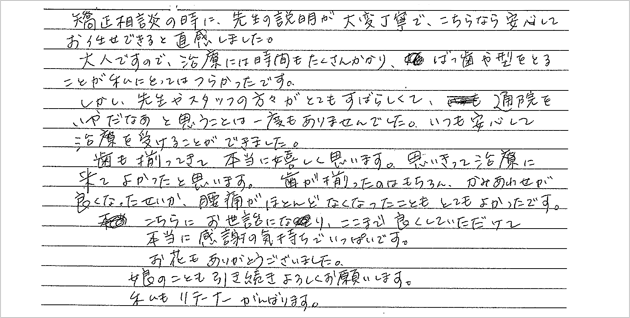 矯正相談の時に、先生の説明が大変丁寧で、こちらなら安心して
お任せできると直感しました。
大人ですので、治療には時間もたくさんかかり、ばっ歯や型をとる
ことが私にとってはつらかったです。
しかし、先生やスタッフの方々がとてもすばらしくて、通院を
いやだなあと思うことは一度もありませんでした。いつも安心して
治療を受けることができました。
歯も揃ってきて本当に嬉しく思います。思いきって治療に
来てよかったと思います。歯が揃ったのはもちろん、かみあわせが
良くなったせいか、腰痛がほとんどなくなったこともとてもよかったです。
こちらにお世話になり、ここまで良くしていただけて
本当に感謝の気持ちでいっぱいです。
お花もありがとうございました。
娘のことも引き続きよろしくお願いします。
私もリテーナーがんばります。